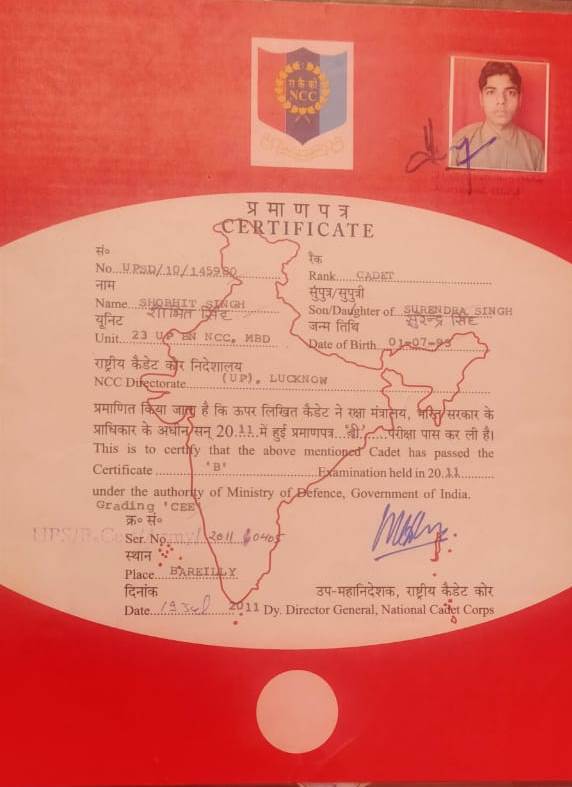 रा कै को
NCC
प्रमाणपत्र
CERTIFICATE
सं०
No. UPSD/10/145990
रैंक
Rank CADET
नाम
Name SHOBHIT SINGH
शोभित सिंह
सुपुत्र/सुपुत्री
Son/Daughter of SURENDRA SINGH
सुरेन्द्र सिंह
यूनिट
Unit 23 UP BN NCC, MBD
जन्म तिथि
Date of Birth 01-07-93
राष्ट्रीय कैडेट कोर निदेशालय
NCC Directorate (UP), LUCKNOW
प्रमाणित किया जाता है कि ऊपर लिखित कैडेट ने रक्षा मंत्रालय, भारत सरकार के
प्राधिकार के अधीन सन् 2011 में हुई प्रमाणपत्र 'बी' परीक्षा पास कर ली है।
This is to certify that the above mentioned Cadet has passed the
Certificate 'B' Examination held in 2011
under the authority of Ministry of Defence, Government of India.
Grading 'CEE'
क्र० सं०
Ser. No. 2011
स्थान
Place BAREILLY
दिनांक
Date 19 Jul 2011
उप-महानिदेशक, राष्ट्रीय कैडेट कोर
Dy. Director General, National Cadet Corps